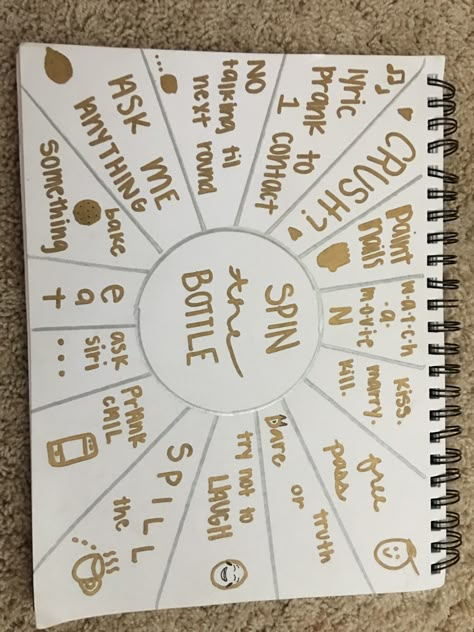 SPIN
the
BOTTLE
lyric
prank to
1 contact
CRUSH?
paint
nails
w·a·t·c·h
·a·
m·o·v·i·e
N
kiss.
marry.
kill.
free
pass
Dare
or
truth
try not to
LAUGH
SPILL
the
PRANK
CALL
ask
siri
...
eat
bake
something
ASK ME
ANYTHING
NO
talking til
next round
...